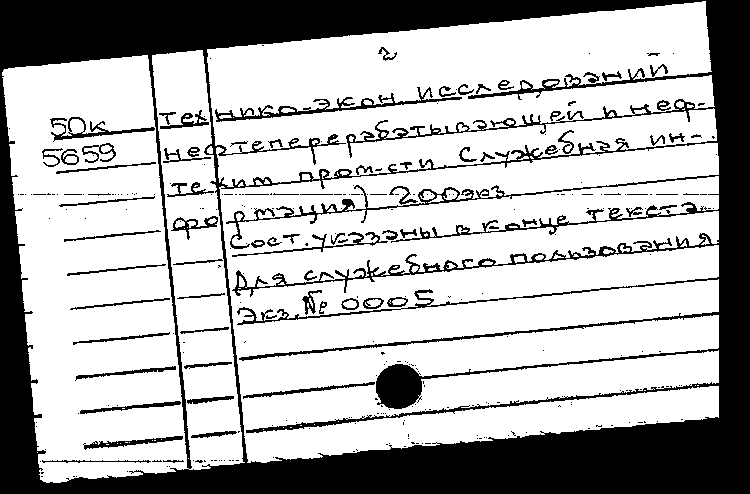 2
50к технико-экон. исследований
5659 нефтеперерабатывающей и неф-
техим пром-сти. Служебная ин-
формация) 200экз.
Сост. указаны в конце текста.
Для служебного пользования.
Экз. № 0005.